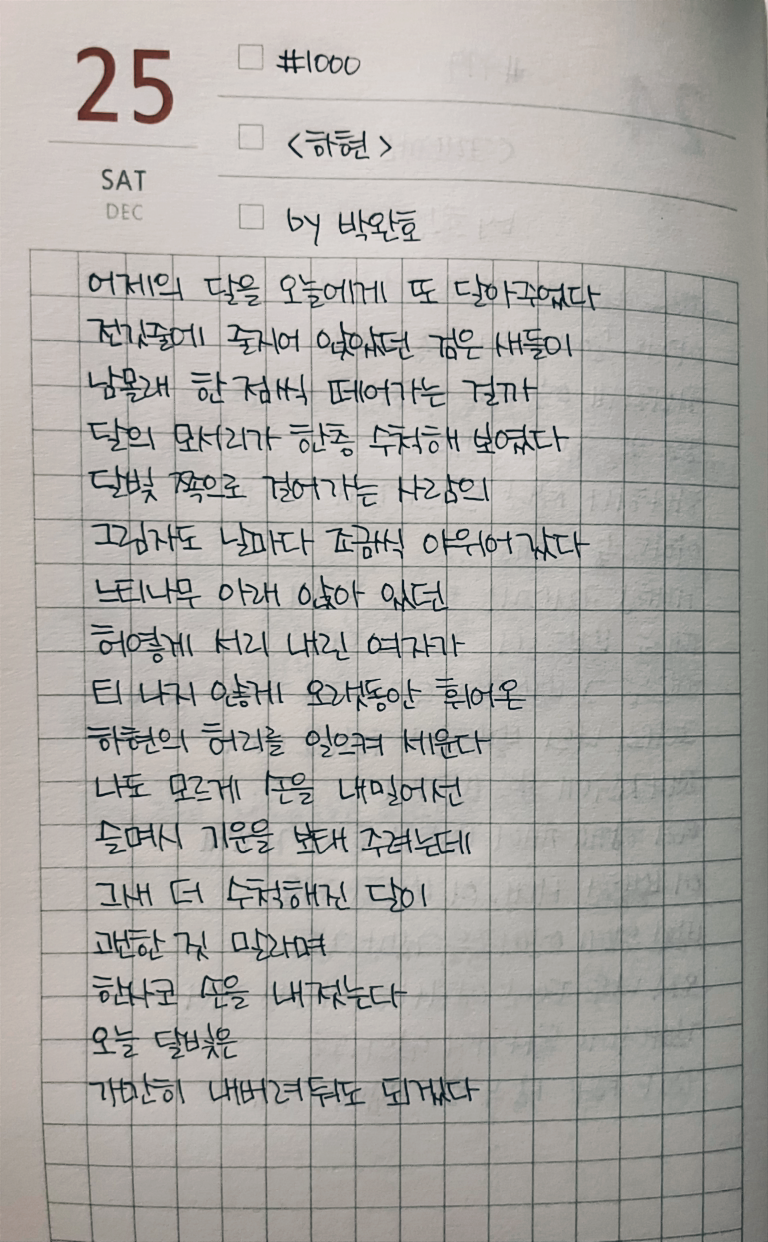 25
SAT
DEC
#1000
<하현>
by 박완호
어제의 달을 오늘에게 또 달아주었다
전깃줄에 줄지어 앉았던 검은 새들이
남몰래 한 점씩 떼어가는 걸까
달의 모서리가 한층 수척해 보였다
달빛 쪽으로 걸어가는 사람의
그림자도 날마다 조금씩 야위어갔다
느티나무 아래 앉아 있던
허옇게 서리 내린 여자가
티 나지 않게 오랫동안 휘어온
하현의 허리를 일으켜 세운다
나도 모르게 손을 내밀어선
슬며시 기운을 보태 주려는데
그새 더 수척해진 달이
괜한 짓 말라며
한사코 손을 내젓는다
오늘 달빛은
가만히 내버려둬도 되겠다